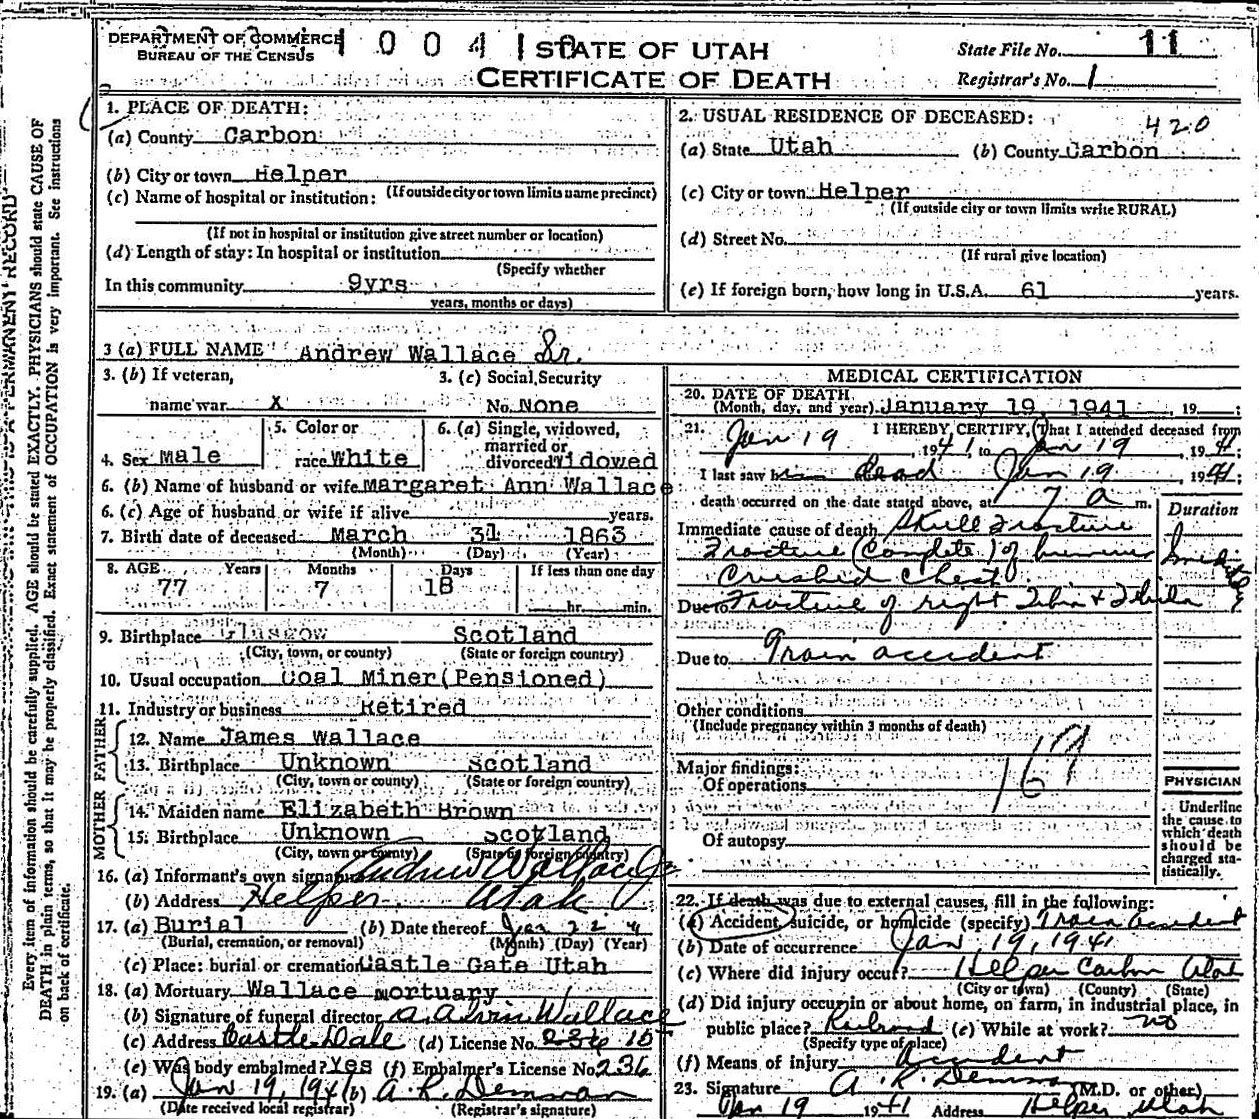 DEPARTMENT OF COMMERCE
BUREAU OF THE CENSUS
1 0 0 4 1 0
STATE OF UTAH
CERTIFICATE OF DEATH
State File No. 11
Registrar's No. 1
1. PLACE OF DEATH:
(a) County Carbon
(b) City or town Helper
(If outside city or town limits name precinct)
(c) Name of hospital or institution:
(If not in hospital or institution give street number or location)
(d) Length of stay: In hospital or institution
(Specify whether
In this community 9yrs
years, months or days)
2. USUAL RESIDENCE OF DECEASED:
420
(a) State Utah (b) County Carbon
(c) City or town Helper
(If outside city or town limits write RURAL)
(d) Street No.
(If rural give location)
(e) If foreign born, how long in U.S.A. 61 years.
3 (a) FULL NAME Andrew Wallace Sr.
3. (b) If veteran, name war X
3. (c) Social Security No. None
4. Sex Male
5. Color or race White
6. (a) Single, widowed, married or divorced Widowed
6. (b) Name of husband or wife Margaret Ann Wallace
6. (c) Age of husband or wife if alive years.
7. Birth date of deceased March 31 1863
(Month) (Day) (Year)
8. AGE Years Months Days If less than one day
77 7 18 hr. min.
9. Birthplace Glasgow Scotland
(City, town, or county) (State or foreign country)
10. Usual occupation Coal Miner(Pensioned)
11. Industry or business Retired
FATHER
12. Name James Wallace
13. Birthplace Unknown Scotland
(City, town or county) (State or foreign country)
MOTHER
14. Maiden name Elizabeth Brown
15. Birthplace Unknown Scotland
(City, town or county) (State or foreign country)
16. (a) Informant's own signature Andrew Wallace Jr
(b) Address Helper Utah
17. (a) Burial (b) Date thereof Jan 22 41
(Burial, cremation, or removal) (Month) (Day) (Year)
(c) Place: burial or cremation Castle Gate Utah
18. (a) Mortuary Wallace mortuary
(b) Signature of funeral director A. Alvin Wallace
(c) Address Castle Dale (d) License No. 236
(e) Was body embalmed? Yes (f) Embalmer's License No. 236
19. (a) Jan 19, 1941 (b) A. R. Demman
(Date received local registrar) (Registrar's signature)
MEDICAL CERTIFICATION
20. DATE OF DEATH
(Month, day, and year) January 19, 1941, 19
21. I HEREBY CERTIFY, That I attended deceased from
Jan 19, 1941, to Jan 19, 1941;
I last saw h dead Jan 19 1941;
death occurred on the date stated above, at 7 a m.
Duration
Immediate cause of death Skull Fracture
Fracture (Complete) of humerus
Crushed Chest
Due to Fracture of right Tibia + Fibula
Due to Train accident
Other conditions
(Include pregnancy within 3 months of death)
Major findings:
Of operations
Of autopsy
PHYSICIAN
Underline the cause to which death should be charged statistically.
22. If death was due to external causes, fill in the following:
(a) Accident, suicide, or homicide (specify) Train accident
(b) Date of occurrence Jan 19, 1941
(c) Where did injury occur? Helper Carbon Utah
(City or town) (County) (State)
(d) Did injury occur in or about home, on farm, in industrial place, in
public place? Railroad (e) While at work? no
(Specify type of place)
(f) Means of injury accident
23. Signature A. R. Demman (M.D. or other)
Jan 19 1941 Address Helper Utah
Every item of information should be carefully supplied. AGE should be stated EXACTLY. PHYSICIANS should state CAUSE OF
DEATH in plain terms, so that it may be properly classified. Exact statement of OCCUPATION is very important. See instructions
on back of certificate.
IS A PERMANENT RECORD